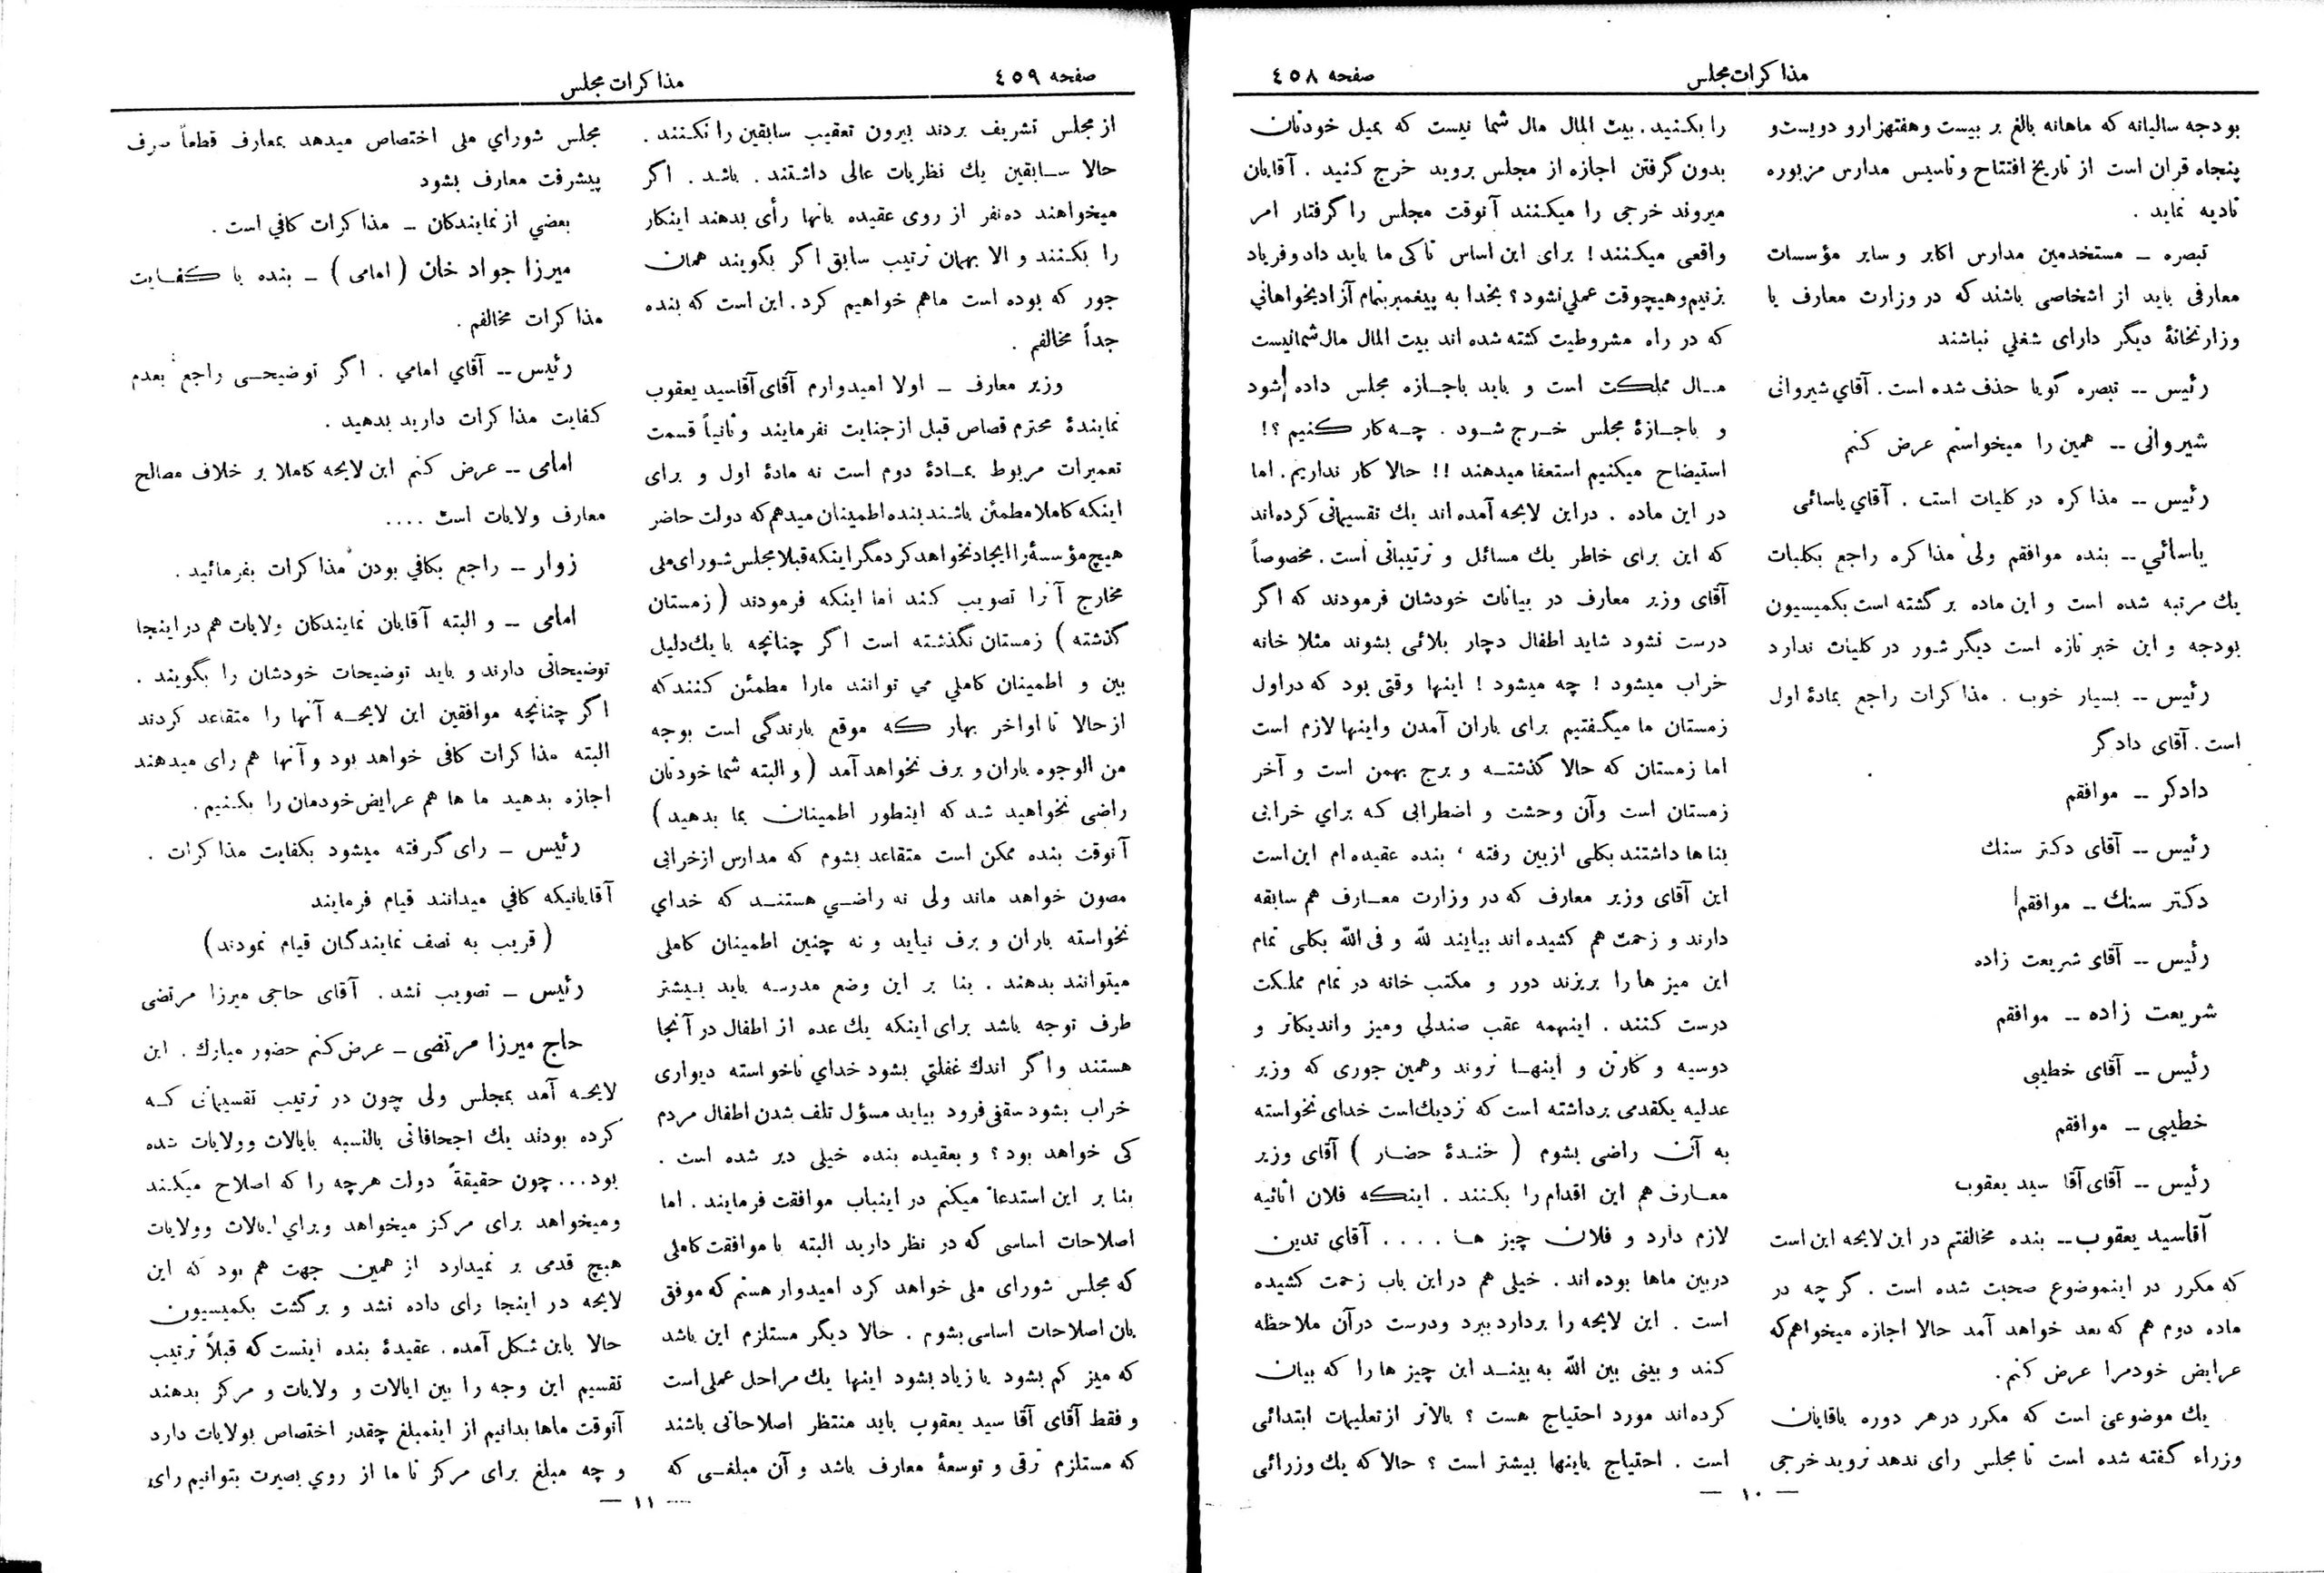 مذاکرات مجلس
صفحه ٤٥٨
بودجه سالیانه که ماهانه بالغ بر بیست وهفتهزارو دویست و
پنجاه قران است از تاریخ افتتاح و تاسیس مدارس مزبوره
تادیه نماید .
تبصره – مستخدمین مدارس اکابر و سایر مؤسسات
معارفی باید از اشخاصی باشند که در وزارت معارف یا
وزارتخانهٔ دیگر دارای شغلي نباشند
رئیس -- تبصره گویا حذف شده است . آقاي شیروانی
شیروانی -- همین را میخواستم عرض کنم
رئیس -- مذاکره در کلیات است . آقاي یاسائی
یاسائي -- بنده موافقم ولی مذاکره راجع بکلیات
یك مرتبه شده است و این ماده برگشته است بکمیسیون
بودجه و این خبر تازه است دیگر شور در کلیات ندارد
رئیس -- بسیار خوب . مذاکرات راجع بمادهٔ اول
است . آقای دادگر
دادگر -- موافقم
رئیس -- آقای دکتر سنك
دکتر سنك -- موافقم
رئیس -- آقای شریعت زاده
شریعت زاده -- موافقم
رئیس -- آقای خطیبی
خطیبی -- موافقم
رئیس -- آقای آقا سید یعقوب
آقاسید یعقوب -- بنده مخالفتم در این لایحه این است
که مکرر در اینموضوع صحبت شده است . گرچه در
ماده دوم هم که بعد خواهد آمد حالا اجازه میخواهم که
عرایض خودمرا عرض کنم .
یك موضوعی است که مکرر در هر دوره باقایان
وزراء گفته شده است تا مجلس رای ندهد نروید خرجی
را بکنید . بیت المال مال شما نیست که بمیل خودتان
بدون گرفتن اجازه از مجلس بروید خرج کنید . آقایان
میروند خرجی را میکنند آنوقت مجلس را گرفتار امر
واقعی میکنند ! برای این اساس تاکی ما باید داد و فریاد
بزنیم وهیچوقت عملي نشود ؟ بخدا به پیغمبر بتمام آزادیخواهانی
که در راه مشروطیت کشته شده اند بیت المال مال شما نیست
مـال مملکت است و باید باجـازه مجلس داده شود
و باجـازهٔ مجلس خـرج شـود . چـه کار کنیم ؟!
استیضاح میکنیم استعفا میدهند !! حالا کار نداریم . اما
در این ماده . در این لایحه آمده اند یك تقسیماتی کرده‌اند
که این برای خاطر یك مسائل و ترتیباتی است . مخصوصاً
آقای وزیر معارف در بیانات خودشان فرمودند که اگر
درست نشود شاید اطفال دچار بلائی بشوند مثلا خانه
خراب میشود ! چه میشود ! اینها وقتی بود که در اول
زمستان ما میگفتیم برای باران آمدن و اینها لازم است
اما زمستان که حالا گذشتـه و برج بهمن است و آخر
زمستان است و آن وحشت و اضطرابی که براي خرابی
بناها داشتند بکلی از بین رفته ، بنده عقیده ام این است
این آقای وزیر معارف که در وزارت معـارف هم سابقه
دارند و زحمت هم کشیده اند بیایند لله و فی الله بکلی تمام
این میز ها را بریزند دور و مکتب خانه در تمام مملکت
درست کنند . اینهمه عقب صندلي و میز و اندیکاتر و
دوسیه و کارتن و اینهـا نروند و همین جوری که وزیر
عدلیه یکقدمی برداشته است که نزدیك است خدای نخواسته
به آن راضی بشوم ( خندهٔ حضار ) آقای وزیر
معـارف هم این اقدام را بکنند . اینـکه فلان اثاثیه
لازم دارد و فلان چیز هـا .... آقای تدین
در بین ماها بوده اند . خیلی هم در این باب زحمت کشیده
است . این لایحه را بردارد ببرد و درست در آن ملاحظه
کند و بینی بین الله به بینـد این چیز ها را که بیان
کرده‌اند مورد احتیاج هست ؟ بالاتر از تعلیمات ابتدائی
است . احتیاج باینها بیشتر است ؟ حالا که یك وزرائی
— ۱۰ —
صفحه ٤٥٩
مذاکرات مجلس
از مجلس تشریف بردند بیرون تعقیب سابقین را نکنند .
حالا سـابقین یك نظریات عالی داشتند . باشد . اگر
میخواهند ده نفر از روی عقیده بانها رأی بدهند اینکار
را بکنند و الا بهمان ترتیب سابق اگر بگویند همان
جور که بوده است ماهم خواهیم کرد . این است که بنده
جداً مخالفم .
وزیر معارف – اولا امیدوارم آقای آقاسید یعقوب
نمایندهٔ محترم قصاص قبل از جنایت نفرمایند و ثانیاً قسمت
تعمیرات مربوط بمـادهٔ دوم است نه مادهٔ اول و برای
اینکه کاملا مطمئن باشند بنده اطمینان میدهم که دولت حاضر
هیچ مؤسسهٔ را ایجاد نخواهد کرد مگر اینکه قبلا مجلس شورای ملی
مخارج آنرا تصویب کند اما اینکه فرمودند ( زمستان
گذشته ) زمستان نگذشته است اگر چنانچه با یك دلیل
بین و اطمینان کاملي می توانند مارا مطمئن کنند که
از حالا تا اواخر بهار که موقع بارندگی است بوجه
من الوجوه باران و برف نخواهد آمد ( و البته شما خودتان
راضی نخواهید شد که اینطور اطمینان بما بدهید )
آنوقت بنده ممکن است متقاعد بشوم که مدارس از خرابی
مصون خواهد ماند ولی نه راضـي هستنـد که خداي
نخواسته باران و برف نیاید و نه چنین اطمینان کاملی
میتوانند بدهند . بنا بر این وضع مدرسه باید بیشتر
طرف توجه باشد برای اینکه یك عده از اطفال در آنجا
هستند و اگر اندك غفلتي بشود خداي ناخواسته دیواری
خراب بشود سقفی فرود بیاید مسؤل تلف شدن اطفال مردم
کی خواهد بود ؟ و بعقیده بنده خیلی دیر شده است .
بنا بر این استدعا میکنم در اینباب موافقت فرمایند . اما
اصلاحات اساسی که در نظر دارید البته با موافقت کاملی
که مجلس شورای ملی خواهد کرد امیدوار هستم که موفق
بان اصلاحات اساسی بشوم . حالا دیگر مستلزم این باشد
که میز کم بشود یا زیاد بشود اینها یك مراحل عملی است
و فقط آقای آقا سید یعقوب باید منتظر اصلاحاتی باشند
که مستلزم ترقی و توسعهٔ معارف باشد و آن مبلغـی که
مجلس شوراي ملی اختصاص میدهد بمعارف قطعاً صرف
پیشرفت معارف بشود
بعضي از نمایندکان – مذاکرات کافي است .
میرزا جواد خان ( امامی ) – بنده با کفـایت
مذاکرات مخالفم .
رئیس -- آقاي امامي . اگر توضیحـی راجع بعدم
کفایت مذاکرات دارید بدهید .
امامی -- عرض کنم این لایحه کاملا بر خلاف مصالح
معارف ولایات است ....
زوار -- راجع بکافي بودن مذاکرات بفرمائید .
امامی -- و البته آقایان نمایندکان ولایات هم در اینجا
توضیحاتی دارند و باید توضیحات خودشان را بگویند .
اگر چنانچه موافقین این لایحـه آنها را متقاعد کردند
البته مذاکرات کافی خواهد بود و آنها هم رای میدهند
اجازه بدهید ما ها هم عرایض خودمان را بکنیم .
رئیس – رای گرفته میشود بکفایت مذاکرات .
آقایانیکه کافي میدانند قیام فرمایند
( قریب به نصف نمایندگان قیام نمودند )
رئیس – تصویب نشد . آقای حاجی میرزا مرتضی
حاج میرزا مرتضی – عرض کنم حضور مبارك . این
لایحـه آمد بمجلس ولی چون در ترتیب تقسیماتی کـه
کرده بودند یك اجحافاتی بالنسبه بایالات و ولایات شده
بود... چون حقیقةً دولت هرچه را که اصلاح میکند
و میخواهد برای مرکز میخواهد و براي ایالات و ولایات
هیچ قدمی بر نمیدارد از همین جهت هم بود که این
لایحه در اینجا رای داده نشد و برگشت بکمیسیون
حالا باین شکل آمده . عقیدهٔ بنده اینست که قبلاً ترتیب
تقسیم این وجه را بین ایالات و ولایات و مرکز بدهند
آنوقت ماها بدانیم از اینمبلغ چقدر اختصاص بولایات دارد
و چه مبلغ برای مرکز تا ما از روي بصیرت بتوانیم رای
— ۱۱ —